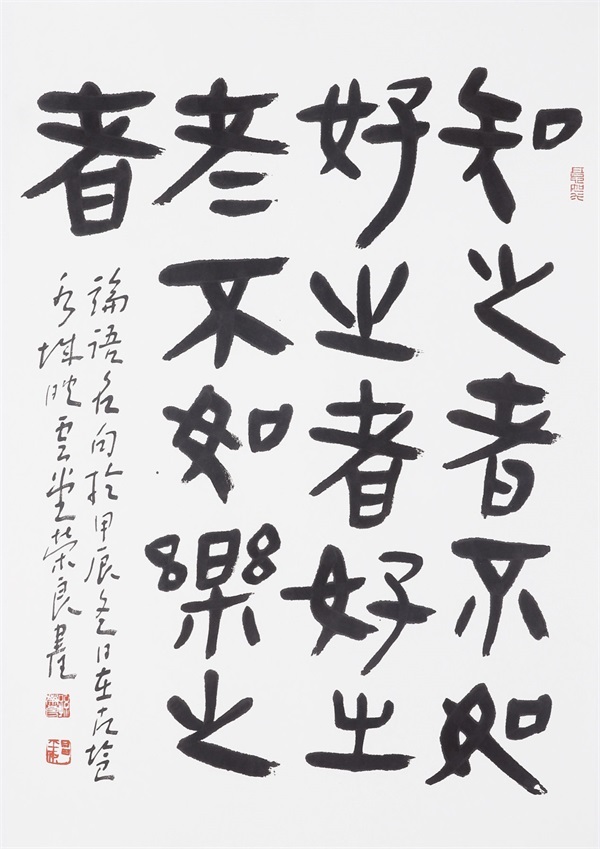 知之者不如
好之者好之
者不如樂之
者
論語名句於甲辰冬日在
映雲堂榮良書